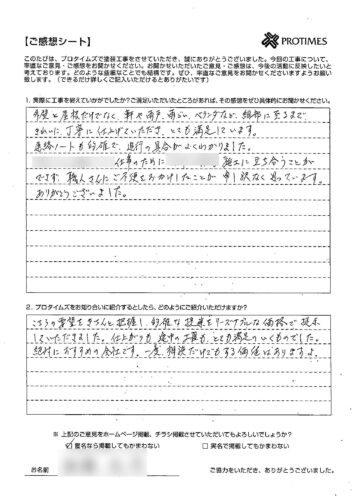 【ご感想シート】
PROTIMES
このたびは、プロタイムズで塗装工事をさせていただき、誠にありがとうございました。今回の工事について、
率直なご意見・ご感想をお聞かせください。お聞かせいただいたご意見・ご感想は、今後の活動に反映したいと
考えております。どのような些細なことでも結構です。ぜひ、率直なご意見をお聞かせくださいますようお願い
致します。(できるだけ詳しくご記入いただけるとありがたいです)
1. 実際に工事を終えていかがでしたか?ご満足いただいたところがあれば、その感想をぜひ具体的にお聞かせください。
外壁と屋根だけでなく、軒や雨戸、雨どい、ベランダなど、細部に至るまで
きれいに、丁寧に仕上げていただき、とても満足しています。
連絡ノートも的確で、進行の具合がよくわかりました。
仕事のために 立ち会うことが
できず、職人さんにご不便をおかけしたことが申し訳なく思っています。
ありがとうございました。
2. プロタイムズをお知り合いに紹介するとしたら、どのようにご紹介いただけますか?
こちらの要望をきちんと把握し、的確な提案をリーズナブルな価格で提示
していただきました。仕上がりも 途中の工程も、とても満足のいくものでした。
絶対におすすめの会社です。一度、相談だけでもする価値はありますよ。
※ 上記のご意見をホームページ掲載、チラシ掲載させていただいてもよろしいでしょうか?
☑ 匿名なら掲載してもかまわない □ 実名で掲載してもかまわない
お名前 ご協力をいただき、ありがとうございました。